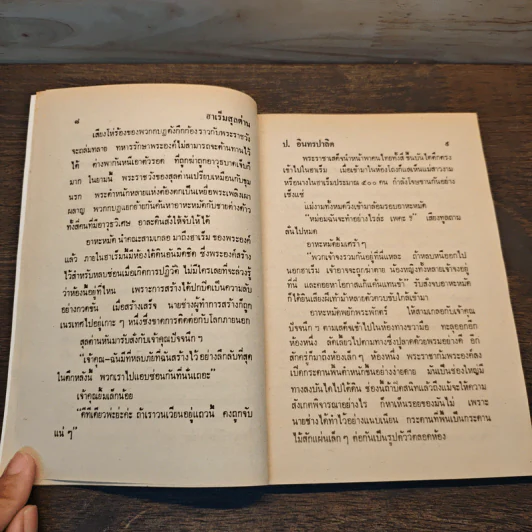 ๘ ฮาเร็มสุลต่าน
เสียงโห่ร้องของพวกกบฏดังกึกก้องราวกับพระราชวัง
จะถล่มทลาย ทหารรักษาพระองค์ไม่สามารถจะต้านทานไว้
ได้ ต่างพากันหนีเอาตัวรอด ที่ถูกฆ่าถูกอาวุธบาดเจ็บก็
มาก ในยามนี้ พระราชวังของสุลต่านเปรียบเหมือนกับขุม
นรก พระตำหนักหลายแห่งต้องตกเป็นเหยื่อพระเพลิงเผา
ผลาญ พวกกบฏแยกย้ายกันค้นหาอาหะหมัดกับชายต่างด้าว
ทั้งสี่คนที่มีอาวุธวิเศษ อาละดินสั่งให้จับให้ได้
อาหะหมัด นำคณะสามเกลอ มาถึงฮาเร็ม ของพระองค์
แล้ว ภายในฮาเร็มนี้มีห้องใต้ดินอันมิดชิด ซึ่งพระองค์สร้าง
ไว้สำหรับหลบซ่อนเมื่อเกิดการปฏิวัติ ไม่มีใครเลยที่จะล่วงรู้
ว่าห้องนี้อยู่ที่ไหน เพราะการสร้างได้ปกปิดเป็นความลับ
อย่างกวดขัน เมื่อสร้างเสร็จ นายช่างผู้ทำการสร้างก็ถูก
เนรเทศไปอยู่เกาะ ๆ หนึ่งซึ่งขาดการติดต่อกับโลกภายนอก
สุลต่านหันมารับสั่งกับเจ้าคุณปัจจนึก ฯ
"เจ้าคุณ–ฉันมีที่หลบภัยที่ฉันสร้างไว้อย่างลึกลับที่สุด
ในตึกหลังนี้ พวกเราไปแอบซ่อนกันที่นั่นเถอะ"
เจ้าคุณยิ้มเล็กน้อย
"ดีทีเดียวพะย่ะค่ะ ถ้าเราวนเวียนอยู่แถวนี้ คงถูกจับ
แน่ ๆ"
ป. อินทรปาลิต ๙
พระราชาเสด็จนำหน้าพาคนไทยทั้งสี่ ขึ้นบันไดตึกตรง
เข้าไปในฮาเร็ม เมื่อเข้ามาในห้องโถงก็แลเห็นแม่สาวงาม
หรือนางในฮาเร็มประมาณ ๕๐๐ คน กำลังโจษขานกันอย่าง
เซ็งแซ่
แม่งามทั้งหมดวิ่งเข้ามาล้อมรอบอาหะหมัด
"หม่อมฉันจะทำอย่างไรล่ะ เพคะ ?" เสียงทูลถาม
ลั่นไปหมด
อาหะหมัดยิ้มเศร้า ๆ
"พวกเจ้าจงรวมกันอยู่ที่นี่แหละ ถ้าหลบหนีออกไป
นอกฮาเร็ม เจ้าอาจจะถูกฆ่าตาย น้องหญิงทั้งหลายเจ้าจงอยู่
ที่นี่ และคอยหาโอกาสแก้แค้นแทนข้า" รับสั่งจบอาหะหมัด
ก็ได้ยินเสียงผีเท้าม้าหลายตัวควบขับใกล้เข้ามา
อาหะหมัดพยักพระพักตร์ ให้สามเกลอกับเจ้าคุณ
ปัจจนึก ฯ ตามเสด็จเข้าไปในห้องทางขวามือ ทะลุออกอีก
ห้องหนึ่ง ลัดเลี้ยวไปตามทางซึ่งปูลาดด้วยพรมอย่างดี อีก
สักครู่ก็มาถึงห้องเล็ก ๆ ห้องหนึ่ง พระราชาก้มพระองค์ลง
เปิดกระดานพื้นตำหนักขึ้นอย่างง่ายดาย มันเป็นช่องใหญ่มี
ทางลงบันไดไปใต้ดิน ช่องนี้ถ้าปิดสนิทแล้วถึงแม้จะให้ความ
สังเกตพิจารณาอย่างไร ก็หาเห็นรอยของมันไม่ เพราะ
นายช่างได้ทำไว้อย่างแนบเนียน กระดานที่พื้นเป็นกระดาน
ไม้สักแผ่นเล็ก ๆ ต่อกันเป็นรูปตัววีตลอดห้อง